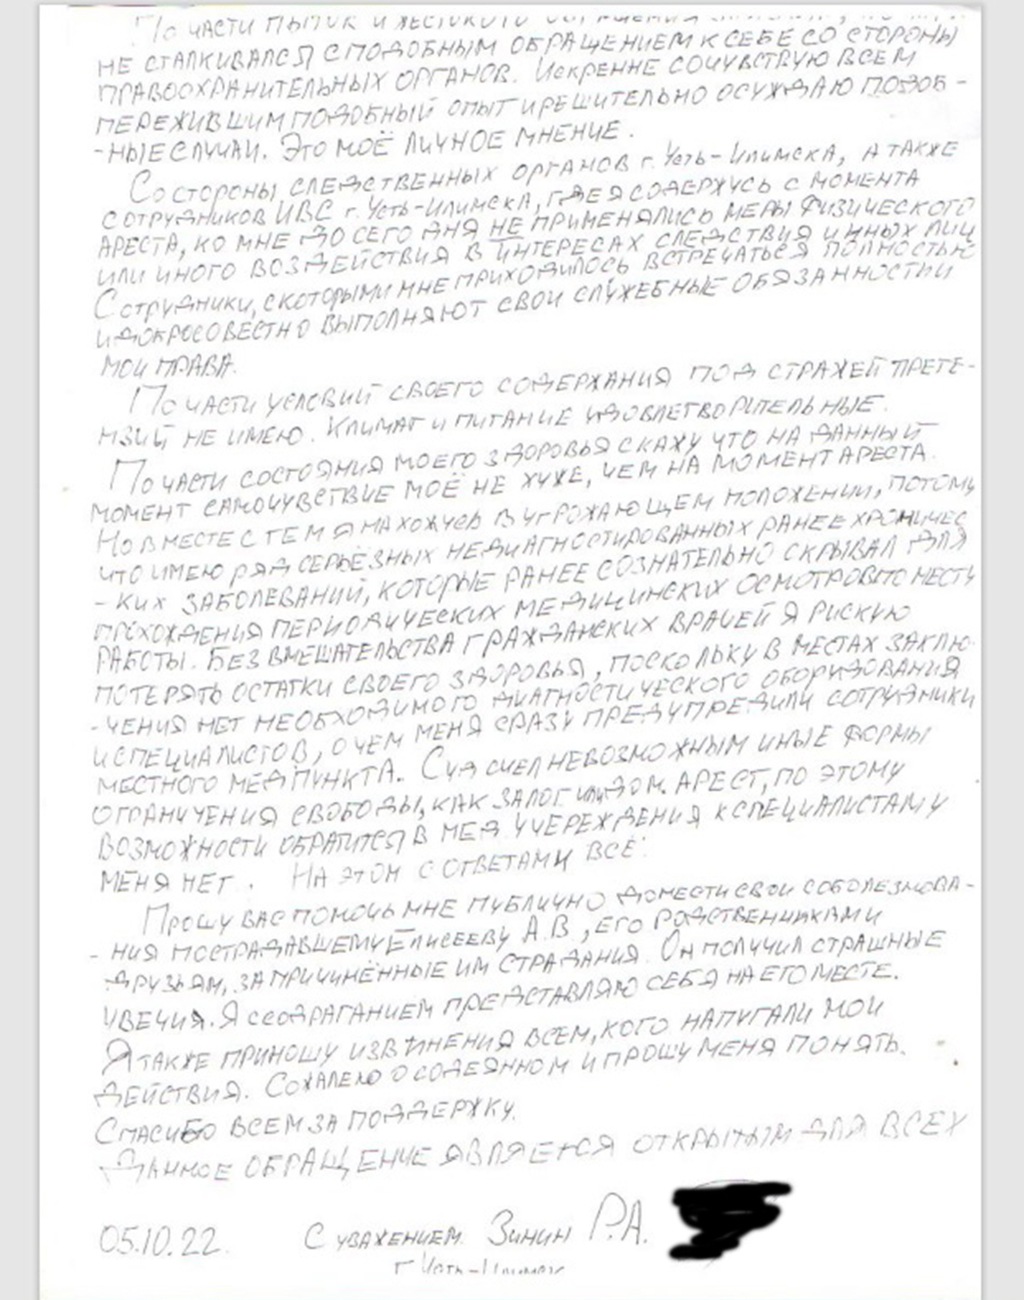 По части пыток и жестокого обращения
не сталкивался с подобным обращением к себе со стороны
правоохранительных органов. Искренне сочувствую всем
пережившим подобный опыт и решительно осуждаю подоб-
-ные случаи. Это моё личное мнение.
Со стороны следственных органов г. Усть-Илимска, а также
сотрудников ИВС г. Усть-Илимска, где я содержусь с момента
ареста, ко мне до сего дня не применялись меры физического
или иного воздействия в интересах следствия и иных лиц
Сотрудники, с которыми мне приходилось встречаться полностью
и докросовестно выполняют свои служебные обязанности и
мои права.
По части условий своего содержания под стражей прете-
нзий не имею. Климат и питание удовлетворительные.
По части состояния моего здоровья скажу что на данный
момент самочувствие моё не хуже, чем на момент ареста.
Но вместе с тем я нахожусь в угрожающем положении, потому
что имею ряд серьёзных недиагностированных ранее хроничес
-ких заболеваний, которые ранее сознательно скрывал для
прохождения периодических медицинских осмотров по месту
работы. Без вмешательства гражданских врачей я рискую
потерять остатки своего здоровья, поскольку в местах заклю-
-чения нет необходимого диагностического оборудования
и специалистов, о чем меня сразу предупредили сотрудники
местного медпункта. Суд счел невозможным иные формы
ограничения свободы, как залог или дом. арест, по этому
возможности обратится в мед. учереждения к специалистам у
меня нет. На этом с ответами всё.
Прошу вас помочь мне публично донести свои соболезнова-
-ния пострадавшему Елисееву А.В., его родственникам и
друзьям, за причинённые им страдания. Он получил страшные
увечия. Я с содраганием представляю себя на его месте.
Я также приношу извинения всем, кого напугали мои
действия. Сожалею о содеянном и прошу меня понять.
Спасибо всем за поддержку.
Данное обращение является открытым для всех
05.10.22. С уважением Зинин Р.А.
г. Усть-Илимск